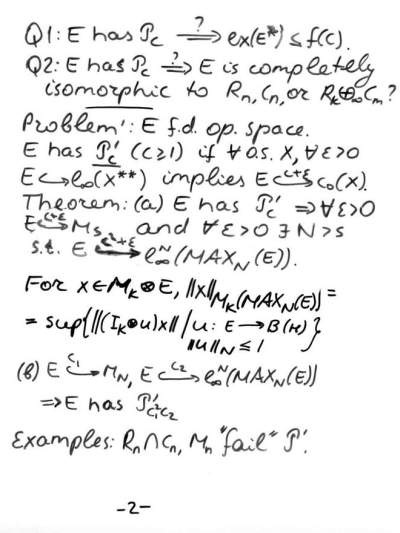 Q1: E has P_c ?⟹ ex(E*) ≤ f(c).
Q2: E has P_c ?⟹ E is completely
isomorphic to R_n, C_n, or R_k⊕_∞C_m?
Problem': E f.d. op. space.
E has P'_c (c≥1) if ∀ o.s. X, ∀ε>0
E↪l_∞(X**) implies E↪^{c+ε} c_0(X).
Theorem: (a) E has P'_c ⟹ ∀ε>0
E↪^{c+ε} M_s, and ∀ε>0 ∃N>s
s.t. E ↪^{c²+ε} l_∞^N(MAX_N(E)).
For x∈M_k⊗E, ||x||_{M_k(MAX_N(E))} =
= sup{||(I_k⊗u)x|| / u: E→B(H)}
||u||_N ≤ 1
(b) E ↪^{c_1} M_N, E ↪^{c_2} l_∞^N(MAX_N(E))
⟹ E has P'_{c_1²c_2}
Examples: R_n∩C_n, M_n "fail" P'.
-2-